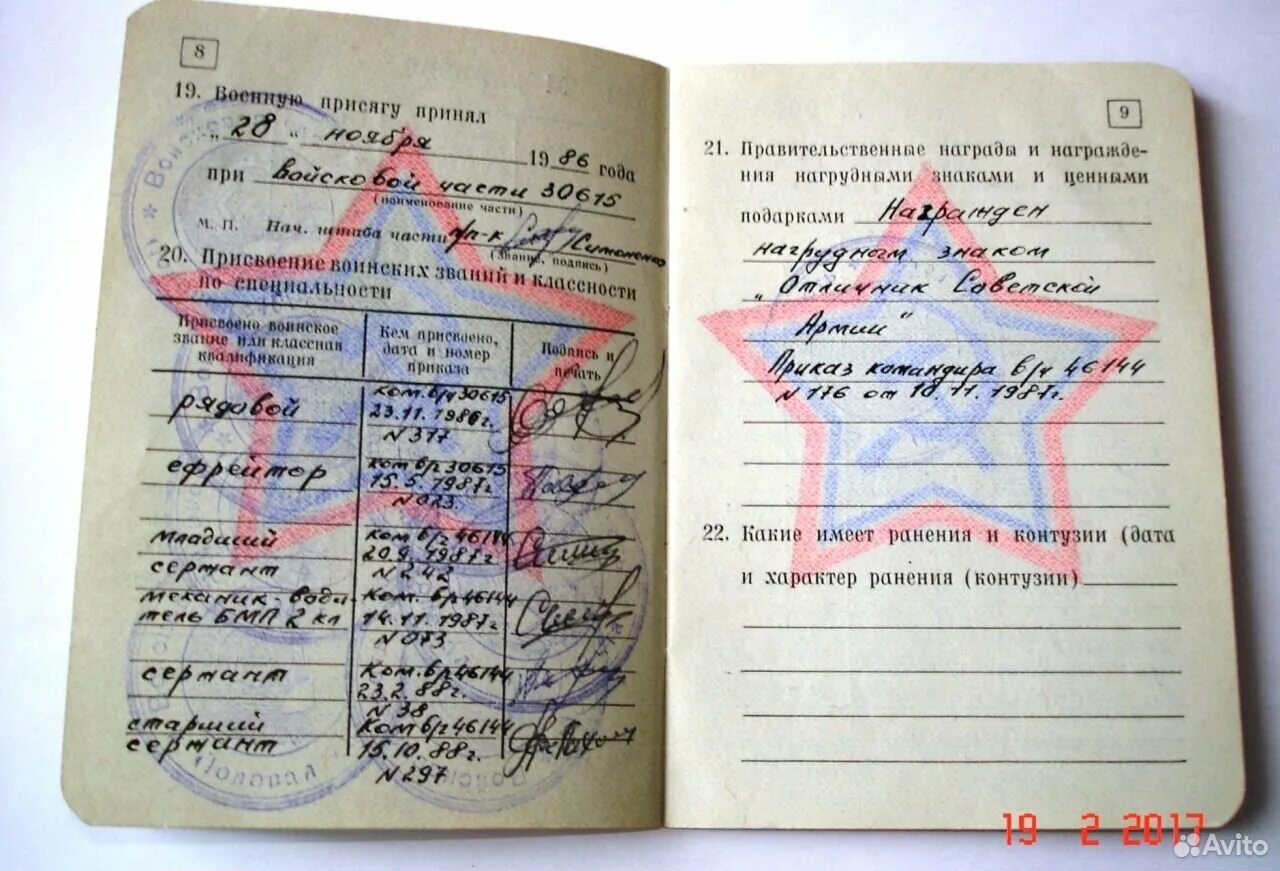 8
19. Военную присягу принял
„ 28 “ ноября 1986 года
при войсковой части 30615
(наименование части)
М. П. Нач. штаба части п/п-к Симоненко
(звание, подпись)
20. Присвоение воинских званий и классности
по специальности
Присвоено воинское
звание или классная
квалификация
Кем присвоено,
дата и номер
приказа
Подпись и
печать
рядовой
ком. в/ч 30615
23.11.1986г.
N 317
ефрейтор
ком в/ч 30615
15.5.1987г
N 023.
младший
сержант
ком в/ч 46144
20.9.1987г
N 242
механик-води
тель БМП 2 кл
ком. в/ч 46144
14.11.1987г.
N 073
сержант
ком. в/ч 46144
23.2.88г.
N 38
старший
сержант
ком в/ч 46144
15.10.88г.
N 297
9
21. Правительственные награды и награжде-
ния нагрудными знаками и ценными
подарками Награжден
нагрудным знаком
„Отличник Советской
Армии"
Приказ командира в/ч 46144
N 176 от 18.11.1987г.
22. Какие имеет ранения и контузии (дата
и характер ранения (контузии)
19 2 2017
Avito